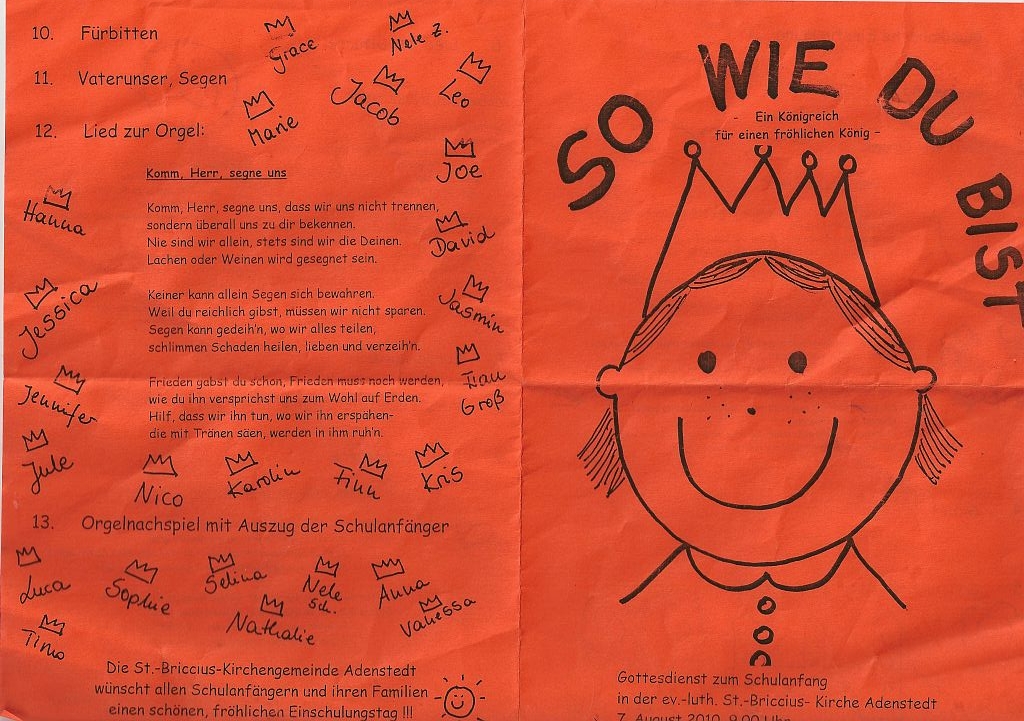 10. Fürbitten
Grace
Nele Z.
11. Vaterunser, Segen
Jacob
Leo
Marie
12. Lied zur Orgel:
Joe
Komm, Herr, segne uns
Hanna
Komm, Herr, segne uns, dass wir uns nicht trennen,
sondern überall uns zu dir bekennen.
Nie sind wir allein, stets sind wir die Deinen.
Lachen oder Weinen wird gesegnet sein.
David
Jessica
Keiner kann allein Segen sich bewahren.
Weil du reichlich gibst, müssen wir nicht sparen.
Segen kann gedeih'n, wo wir alles teilen,
schlimmen Schaden heilen, lieben und verzeih'n.
Jasmin
Jennifer
Frieden gabst du schon, Frieden muss noch werden,
wie du ihn versprichst uns zum Wohl auf Erden.
Hilf, dass wir ihn tun, wo wir ihn erspähen-
die mit Tränen säen, werden in ihm ruh'n.
Frau
Groß
Jule
Nico
Karolin
Finn
Kris
13. Orgelnachspiel mit Auszug der Schulanfänger
Luca
Sophie
Selina
Nele
Sch.
Anna
Nathalie
Vanessa
Timo
Die St.-Briccius-Kirchengemeinde Adenstedt
wünscht allen Schulanfängern und ihren Familien
einen schönen, fröhlichen Einschulungstag !!!
SO WIE DU BIST
- Ein Königreich
für einen fröhlichen König -
Gottesdienst zum Schulanfang
in der ev.-luth. St.-Briccius- Kirche Adenstedt
7. August 2010, 9.00 Uhr